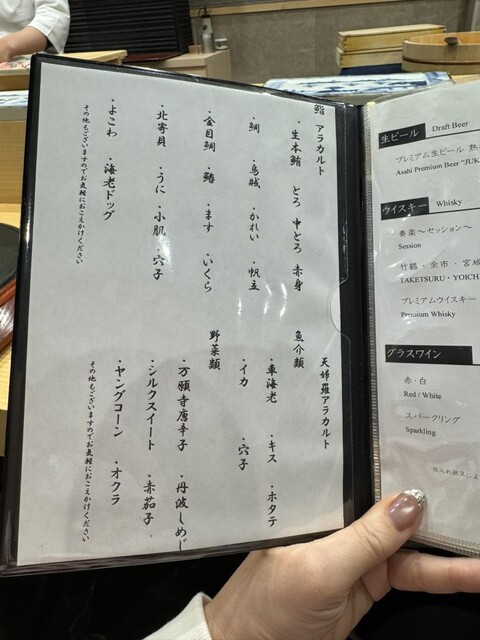 鮨 アラカルト
・生本鮪 とろ 中とろ 赤身
・鯛 ・烏賊 ・かれい ・帆立
・金目鯛 ・鰆 ・ます ・いくら
・北寄貝 ・うに ・小肌 ・穴子
・よこわ ・海老ドッグ
その他もございますのでお気軽におこえかけください
天婦羅アラカルト
魚介類
・車海老 ・キス ・ホタテ
・イカ ・穴子
野菜類
・万願寺唐辛子 ・丹波しめじ
・シルクスイート ・赤茄子
・ヤングコーン ・オクラ
その他もございますのでお気軽におこえかけください
生ビール Draft Beer
プレミアム生ビール 熟
Asahi Premium Beer "JUK
ウイスキー Whisky
奏楽～セッション～
Session
竹鶴・余市・宮城
TAKETSURU・YOICH
プレミアムウイスキー
Premium Whisky
グラスワイン
赤・白
Red / White
スパークリング
Sparkling
仕入れ状況によ